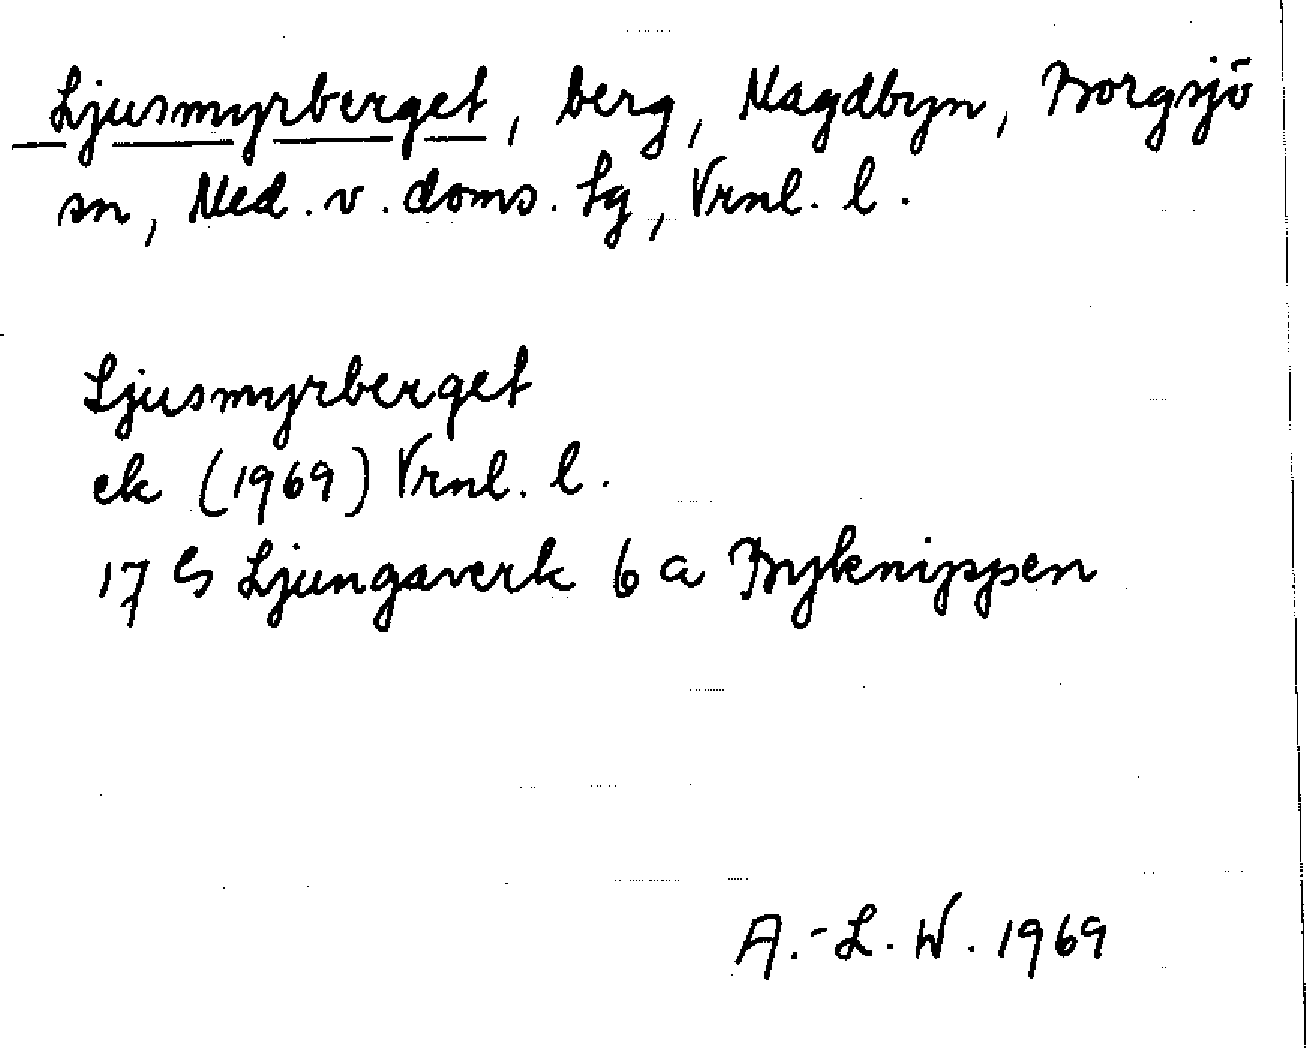 Ljusmyrberget, berg, Nagdbyn, Borgsjö
sn, Med. v. doms. lg, Vrnl. l.
Ljusmyrberget
ek (1969) Vrnl. l.
17 G Ljungaverk 6 a Byknippen
A.-L. W. 1969